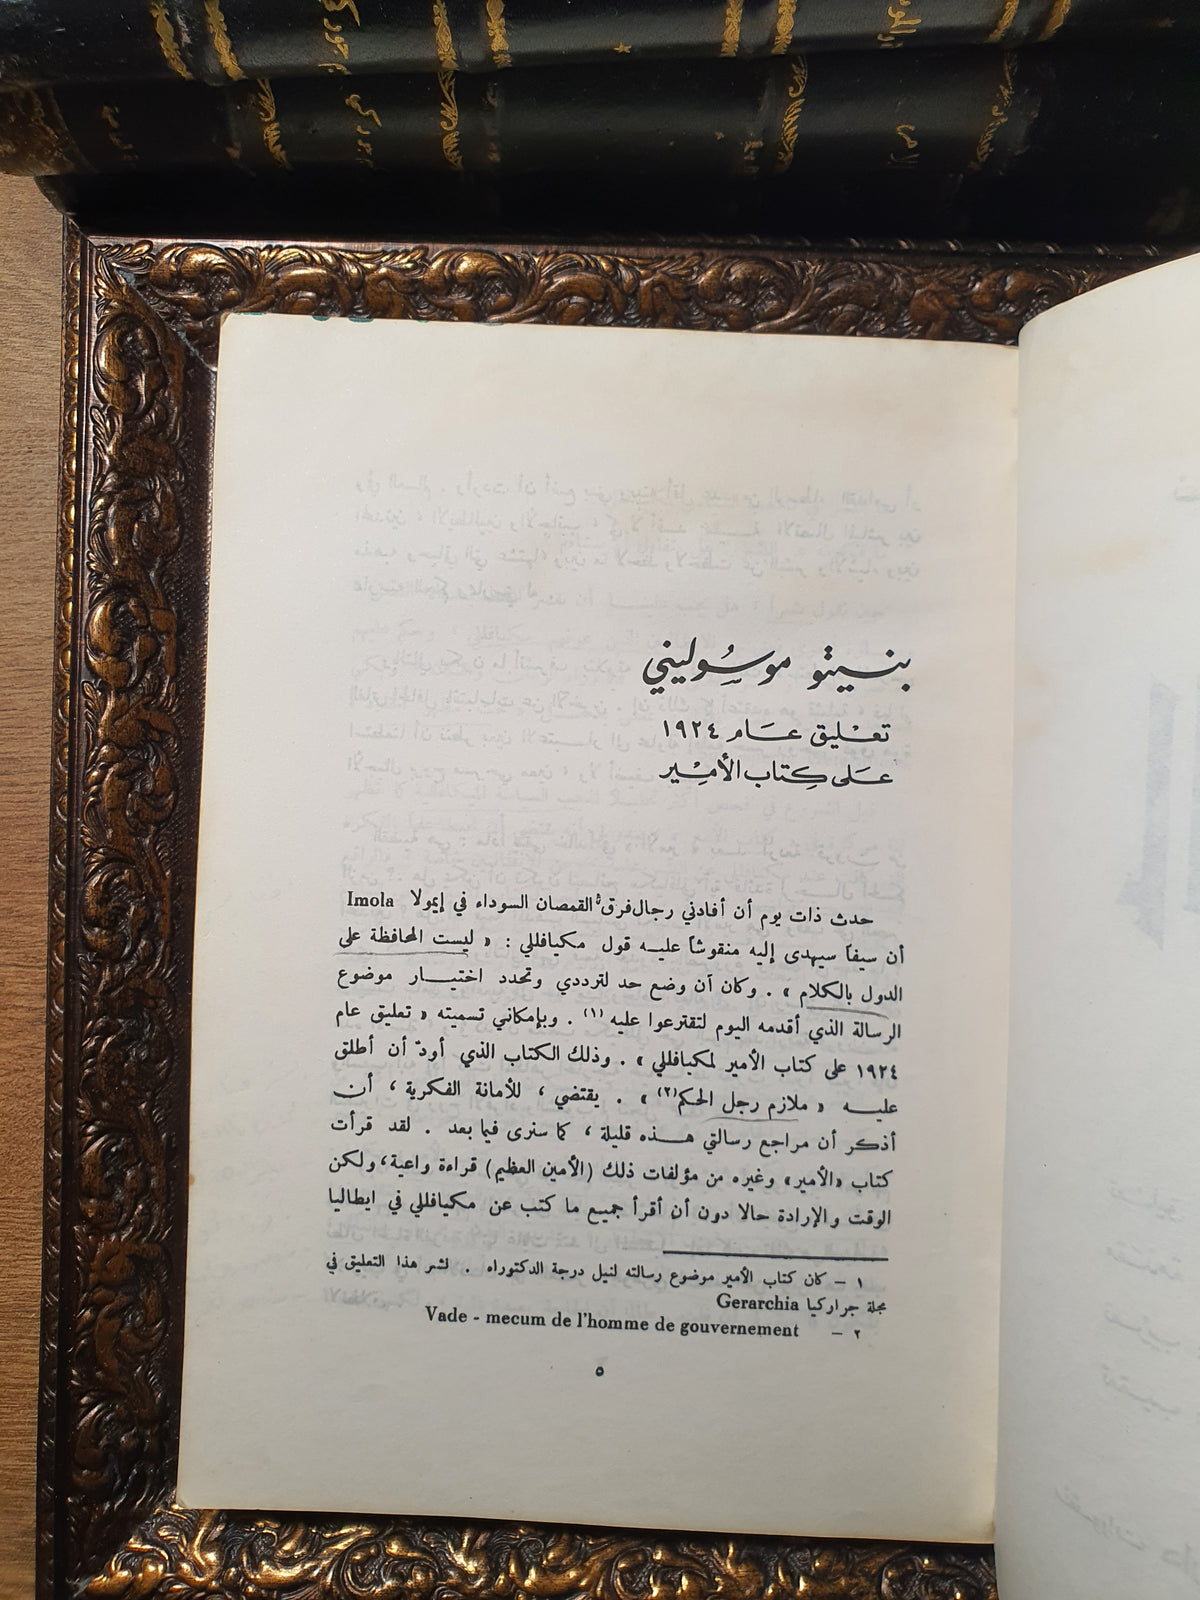 بنيتو موسُوليني
تعْليق عَام ١٩٢٤
عَلى كِتاب الأمِيْر
حدث ذات يوم أن أفادني رجال فرق القمصان السوداء في إيمولا Imola
أن سيفاً سيهدى إليه منقوشاً عليه قول مكيافللي : « ليست المحافظة على
الدول بالكلام » . وكان أن وضع حد لترددي وتحدد اختيار موضوع
الرسالة الذي أقدمه اليوم لتقترعوا عليه (١) . وبإمكاني تسميته « تعليق عام
١٩٢٤ على كتاب الأمير لمكيافللي » . وذلك الكتاب الذي أودّ أن أطلق
عليه « ملازم رجل الحكم(٢) » . يقتضي ، للأمانة الفكرية ، أن
أذكر أن مراجع رسالتي هذه قليلة ، كما سنرى فيما بعد . لقد قرأت
كتاب «الأمير» وغيره من مؤلفات ذلك (الأمين العظيم) قراءة واعية، ولكن
الوقت والإرادة حالا دون أن أقرأ جميع ما كتب عن مكيافللي في ايطاليا
١ – كان كتاب الأمير موضوع رسالته لنيل درجة الدكتوراه . نشر هذا التعليق في
مجلة جراركيا Gerarchia
٢ – Vade - mecum de l'homme de gouvernement
٥